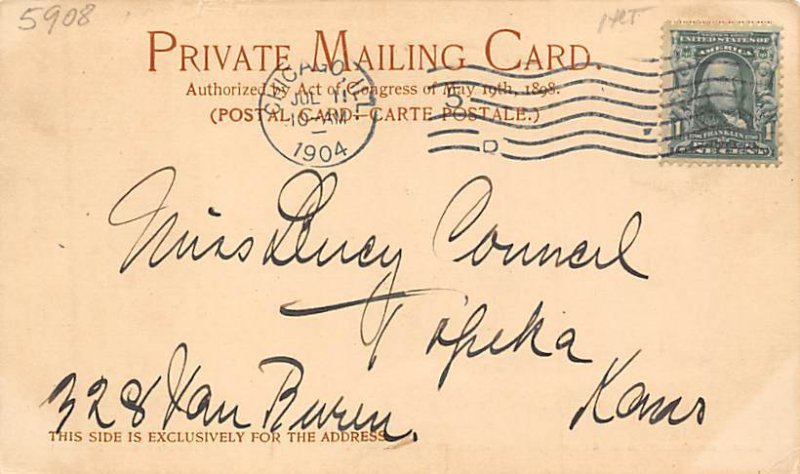 5908
PRIVATE MAILING CARD.
Authorized by Act of Congress of May 19th, 1898.
(POSTAL CARD-CARTE POSTALE.)
CHICAGO, ILL.
JUL 11
10-AM
1904
D
UNITED STATES OF
AMERICA
FRANKLIN
1
Miss Lucy Council
Topeka
Kans
328 Van Buren.
THIS SIDE IS EXCLUSIVELY FOR THE ADDRESS